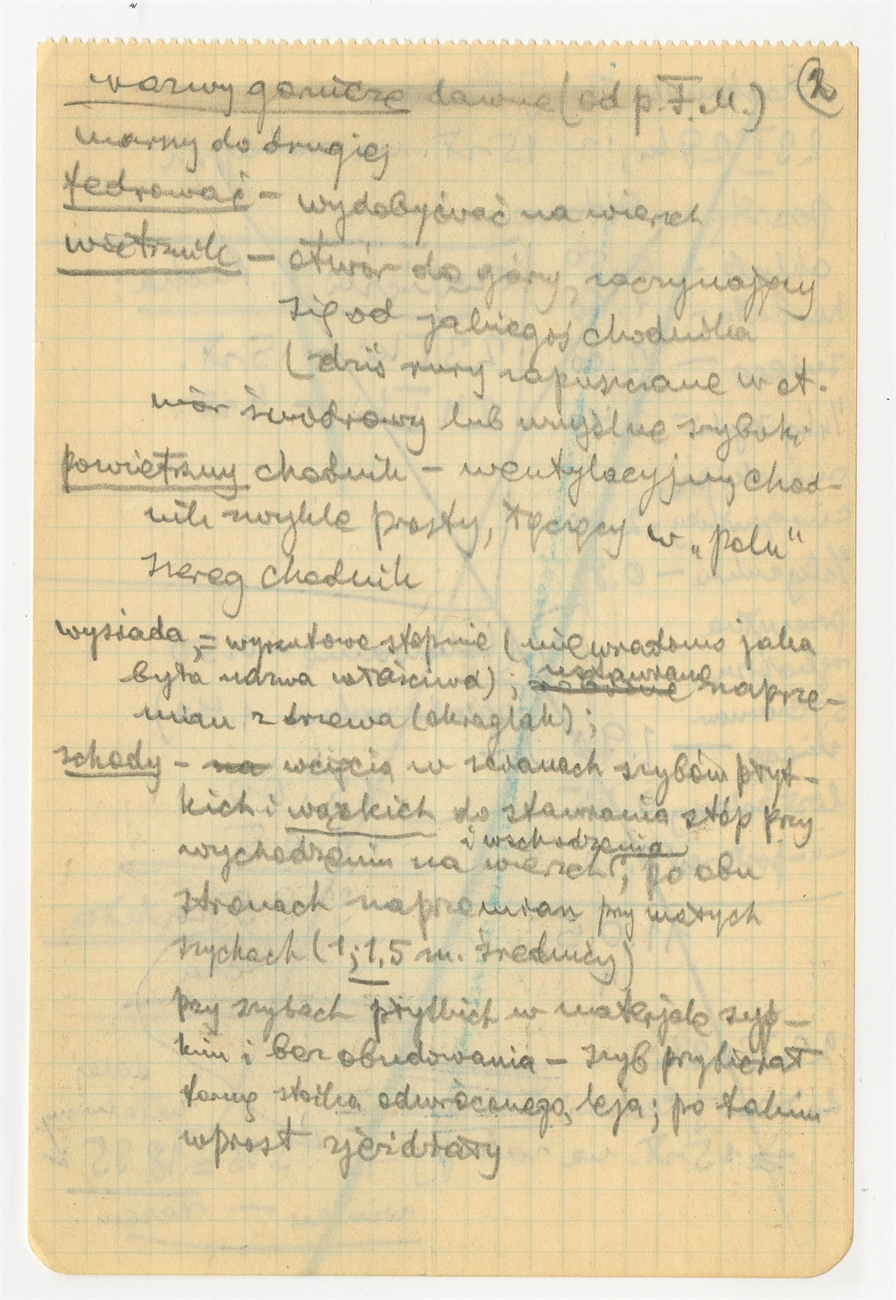 nazwy górnicze dawne (od p. F. M.) 2
do drugiej
fedrować – wydobywać na wierzch
wietrznik – otwór do góry, zaczynający
się od jakiegoś chodnika
(dziś rury zapuszczane w ot-
wór świdrowy lub umyślne szybiki
powietrzny chodnik – wentylacyjny chod-
nik zwykle prosty, łączący w „polu”
szereg chodnik
wysiada, = wyrzutowe stopnie (niewiadomo jaka
była nazwa właściwa); ustawiane naprze-
mian z drzewa (okrąglak);
schody – na wcięcia w ścianach szybów płyt-
kich i wązkich do stawiania stóp przy
wychodzeniu na wierzch i wschodzenia; po obu
stronach naprzemian przy małych
szybach (1; 1,5 m. średnicy)
przy szybach płytkich w materjale syp-
kim i bez obudowania – szyb przybierał
formę stożka odwróconego, leja; po takim
wprost zjeżdżały